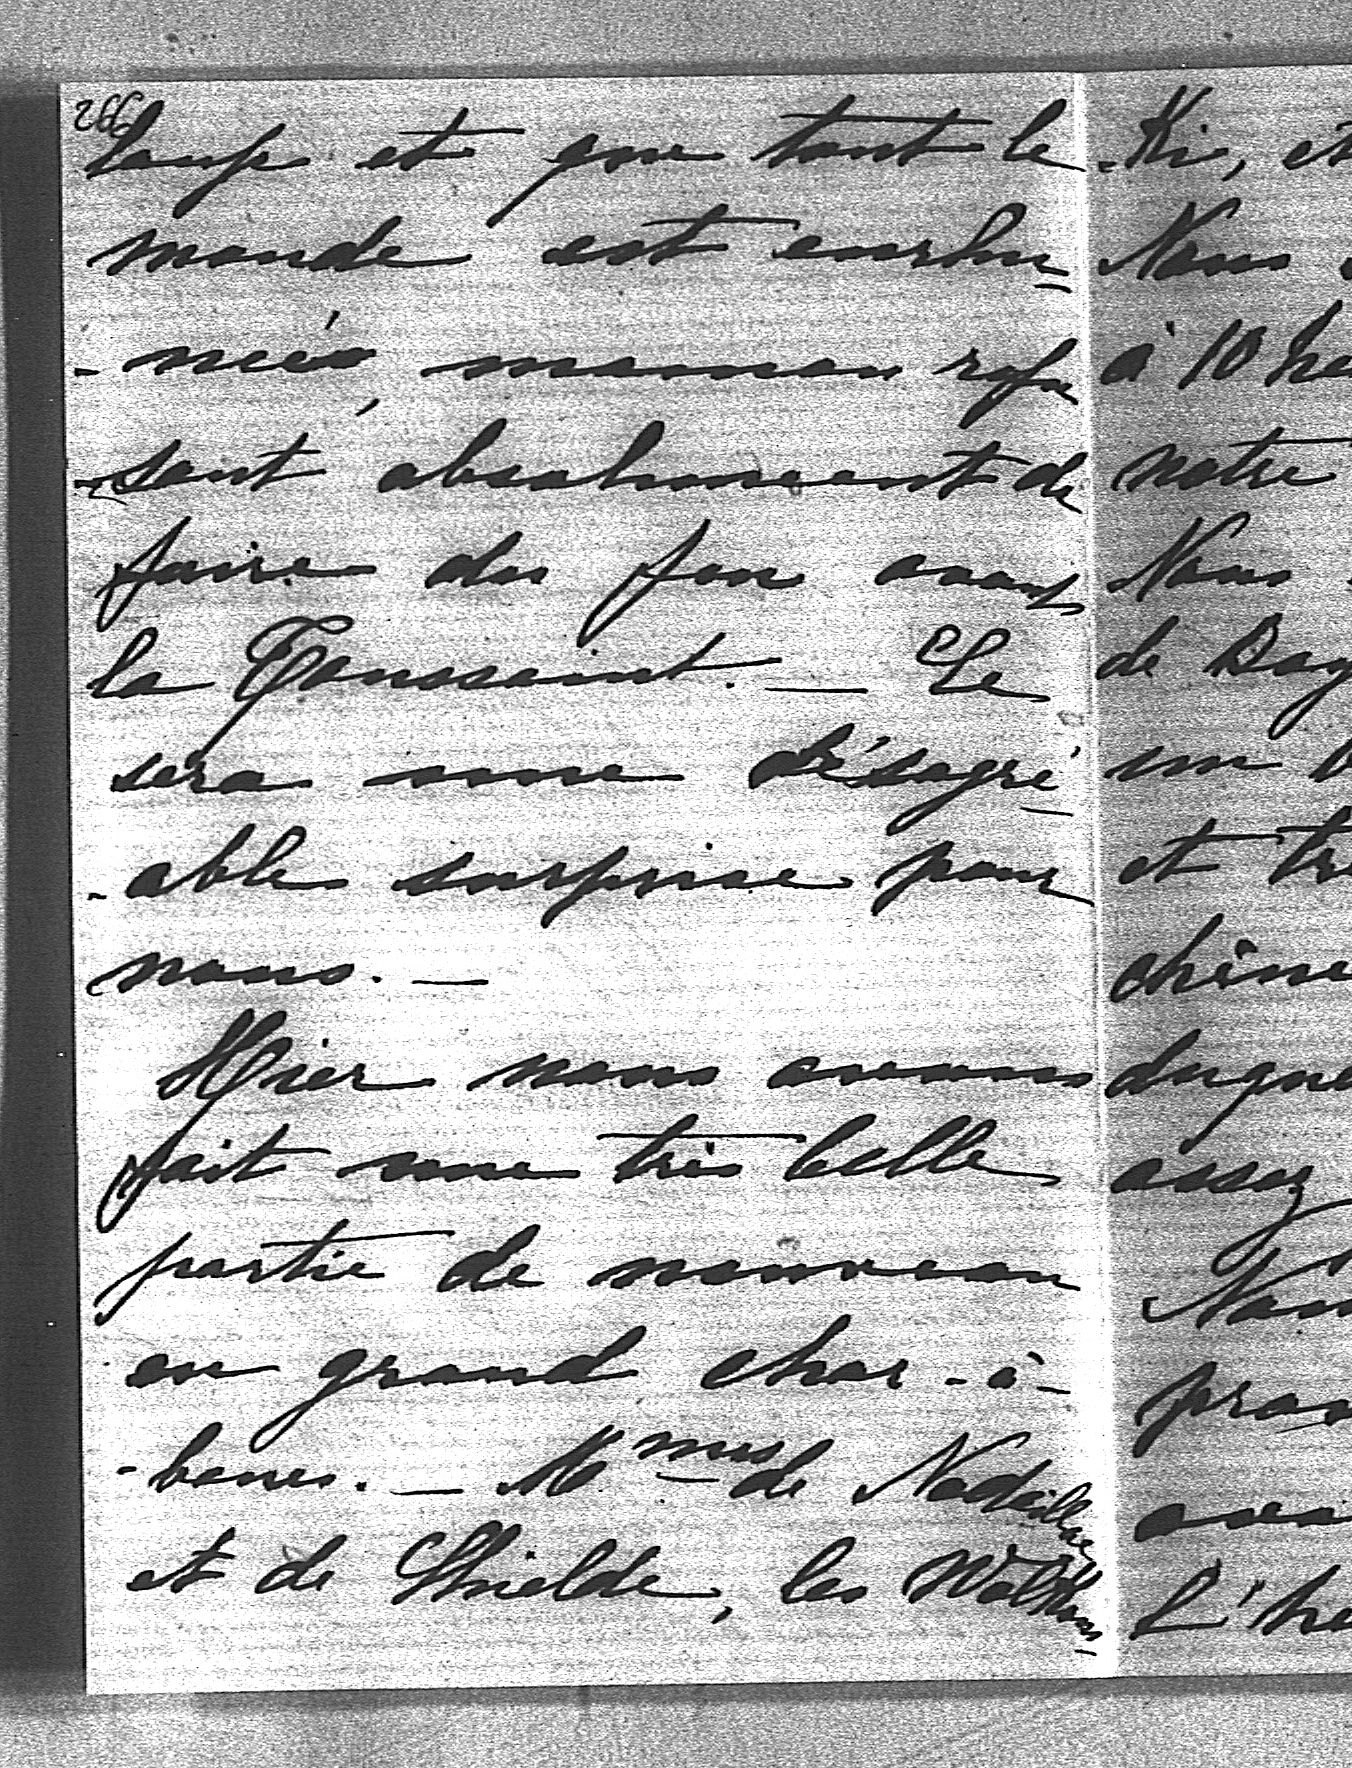 266
loup et que tout le
monde est enrhu-
-més, maman refu
-sant absolument de
faire du feu avant
la Toussaint. — Ce
sera une désagré-
-able surprise pour
nous. —
Hier nous avons
fait une très belle
partie de nouveau
en grand char-à-
-bancs. — Mmes de Nadaillac
et de Shielde, les
-Ki, et
Nous
à 10 he
notre
Nous
de Bay
un b
et tr
chêne
assez
Nou
pran
avo
L'he